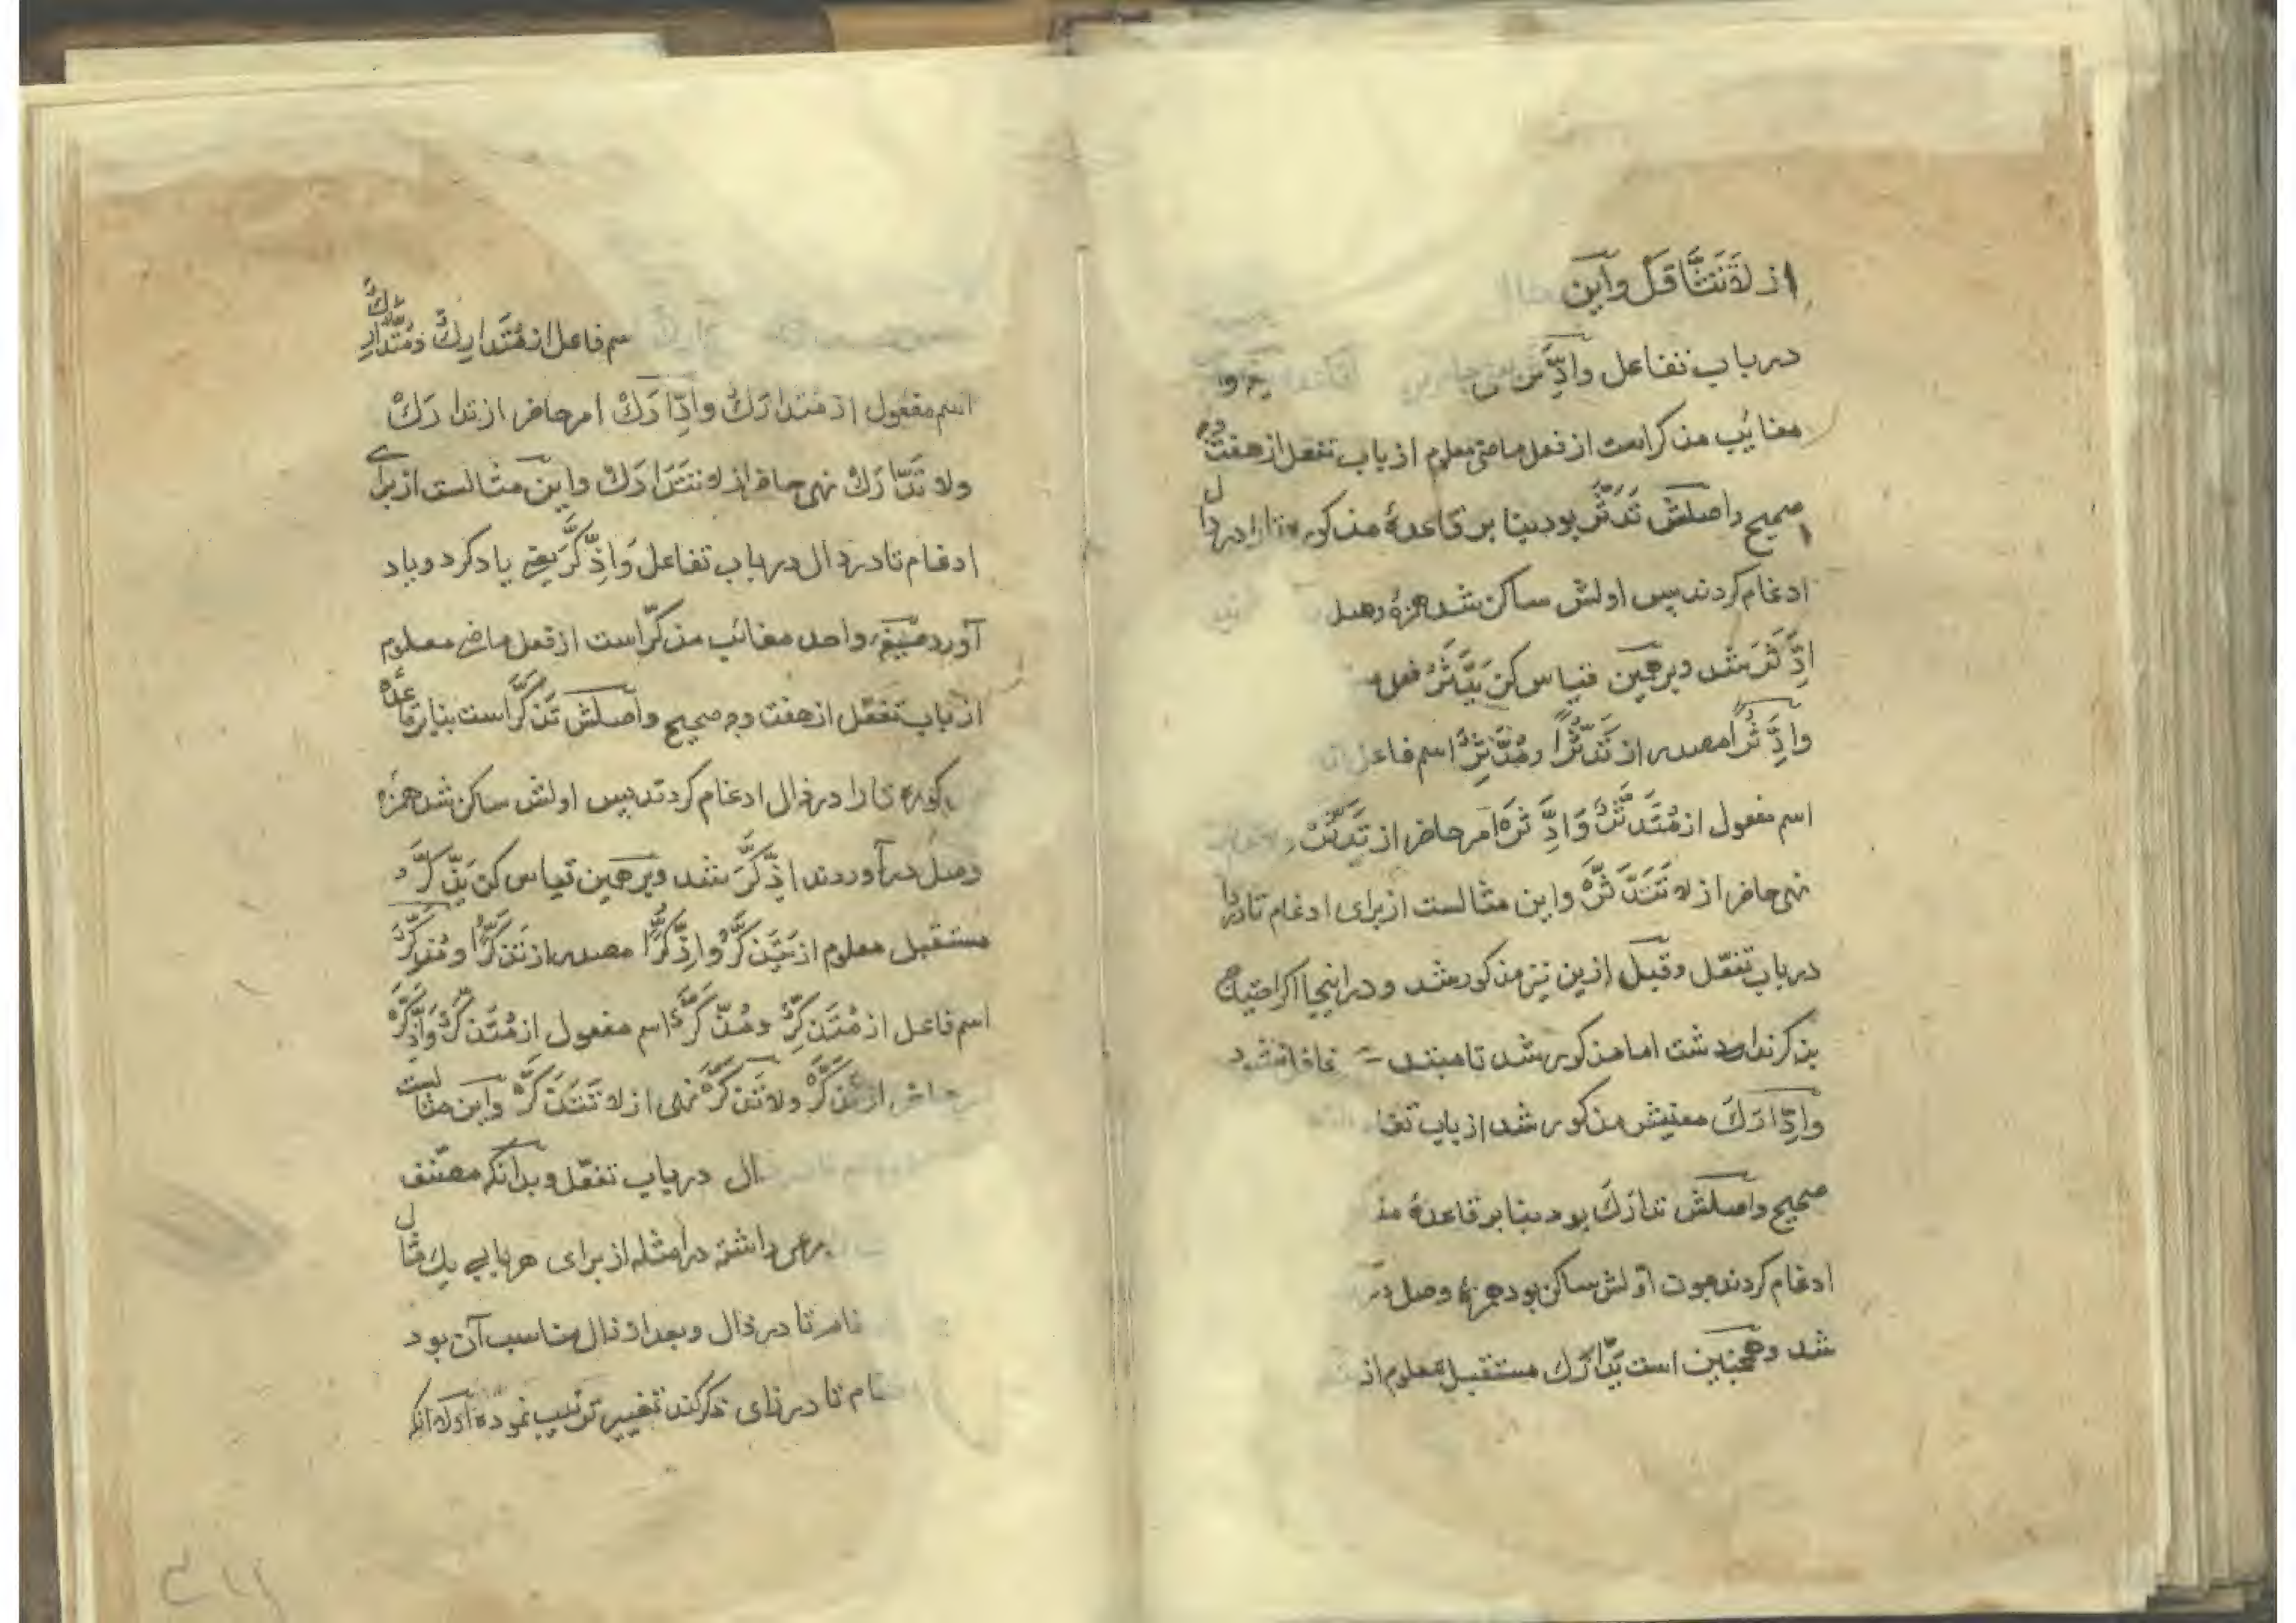 از لاتَتَثَّاقَلْ وَاین
در باب تفاعل وادَّثَّرَ
مغائب مذکر است از فعل ماضی معلوم از باب تفعل از هفت وجه
صحیح واصلش تَدَثَّرَ بود بنا بر قاعدهٔ مذکوره تا را در دال
ادغام کردند پس اولش ساکن شد همزهٔ وصل
اِدَّثَّرَ شد و بر همین قیاس کن یَدَّثَّرُ فعل
وادَّثُّرًا مصدر از تَدَثُّرًا ومُدَّثِّرٌ اسم فاعل
اسم مفعول از مُتَدَثَّرٌ وَادَّثَّرْ امر حاضر از تَدَثَّرْ
نهی حاضر از لا تَتَدَثَّرْ واین مثالست از برای ادغام تا در دال
در باب تفعّل وقبل ازین نیز مذکور شد و در اینجا اگر احتیاج
بذکر نداشت اما مذکور شد تا مبتدی غافل نشود
وادّارَكَ معنیش مذکور شد از باب تفا
صحیح واصلش تدارَكَ بود بنا بر قاعدهٔ مذ
ادغام کردند چون اوّلش ساکن بود همزهٔ وصل
شد و همچنین است یَدّارَكُ مستقبل معلوم از
سم فاعل از مُتَدارِكٌ ومُدّارَكٌ
اسم مفعول از مُتَدارَكٌ وادّارَكْ امر حاضر از تدارَكْ
ولا تَدّارَكْ نهی حاضر از لا تتَدارَكْ واین مثالست از برای
ادغام تا در دال در باب تفاعل وَاذَّكَّرَ یعنی یاد کرد و یاد
آورد صیغهٔ واحد مغائب مذکّر است از فعل ماضی معلوم
از باب تفعّل از هفت وجه صحیح واصلش تَذَكَّرَ است بنا بر قاعدهٔ
کوره تا را در ذال ادغام کردند پس اولش ساکن شد همزه
وصل در آوردند اِذَّكَّرَ شد و بر همین قیاس کن یَذَّكَّرُ
مستقبل معلوم از یَتَذَكَّرُ واذَّكُّرًا مصدر از تَذَكُّرًا ومُذَّكِّرٌ
اسم فاعل از مُتَذَكِّرٌ ومُذَّكَّرٌ اسم مفعول از مُتَذَكَّرٌ وَاذَّكَّرْ
حاضر از تَذَكَّرْ ولا تَذَّكَّرْ نهی از لا تَتَذَكَّرْ واین مثالست
ال در باب تفعّل و بدانکه مصنّف
مرعی داشته در امثله از برای هر بابی یك مثال
غام تا در ذال و بعد از ذال مناسب آن بود
غام تا در زای ذکر کند تغییر ترتیب نموده اولا انکه